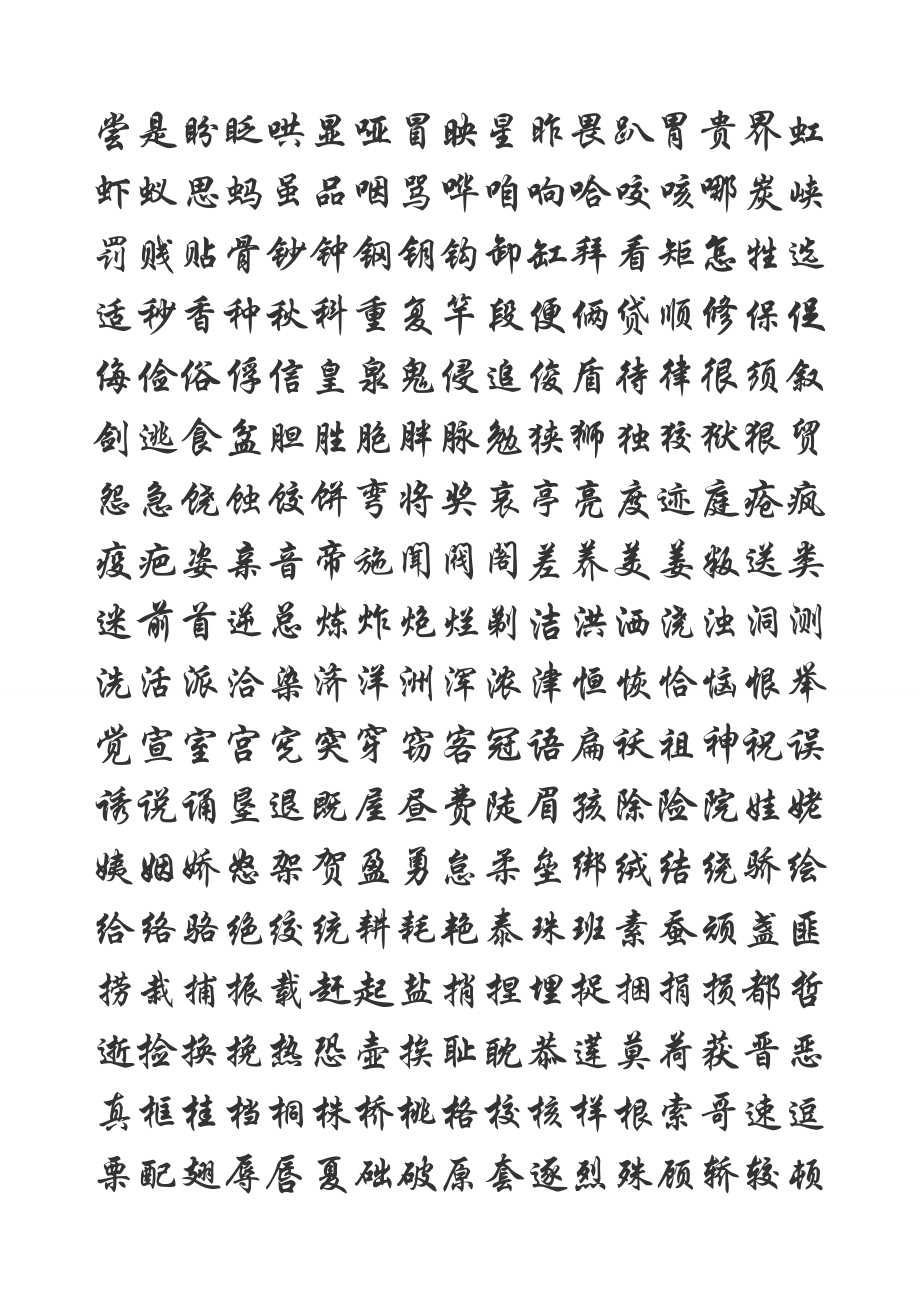 尝是盼眨哄显哑冒映星昨畏趴胃贵界虹
虾蚁思蚂虽品咽骂哗咱响哈咬咳哪炭峡
罚贱贴骨钞钟钢钥钩卸缸拜看矩怎牲选
适秒香种秋科重复竿段便俩贷顺修保促
侮俭俗俘信皇泉鬼侵追俊盾待律很须叙
剑逃食盆胆胜胞胖脉勉狭狮独狡狱狠贸
怨急饶蚀饺饼弯将奖哀亭亮度迹庭疮疯
疫疤姿亲音帝施闻阀阁差养美姜叛送类
迷前首逆总炼炸炮烂剃洁洪洒浇浊洞测
洗活派洽染济洋洲浑浓津恒恢恰恼恨举
觉宣室宫究突穿窃客冠语扁袄祖神祝误
诱说诵垦退既屋昼费陡眉孩除险院娃姥
姨姻娇怒架贺盈勇怠柔垒绑绒结绕骄绘
给络骆绝绞统耕耗艳泰珠班素蚕顽盏匪
捞栽捕振载赶起盐捎捏埋捉捆捐损都哲
逝捡换挽热恐壶挨耻耽恭莲莫荷获晋恶
真框桂档桐株桥桃格校核样根索哥速逗
栗配翅辱唇夏础破原套逐烈殊顾轿较顿